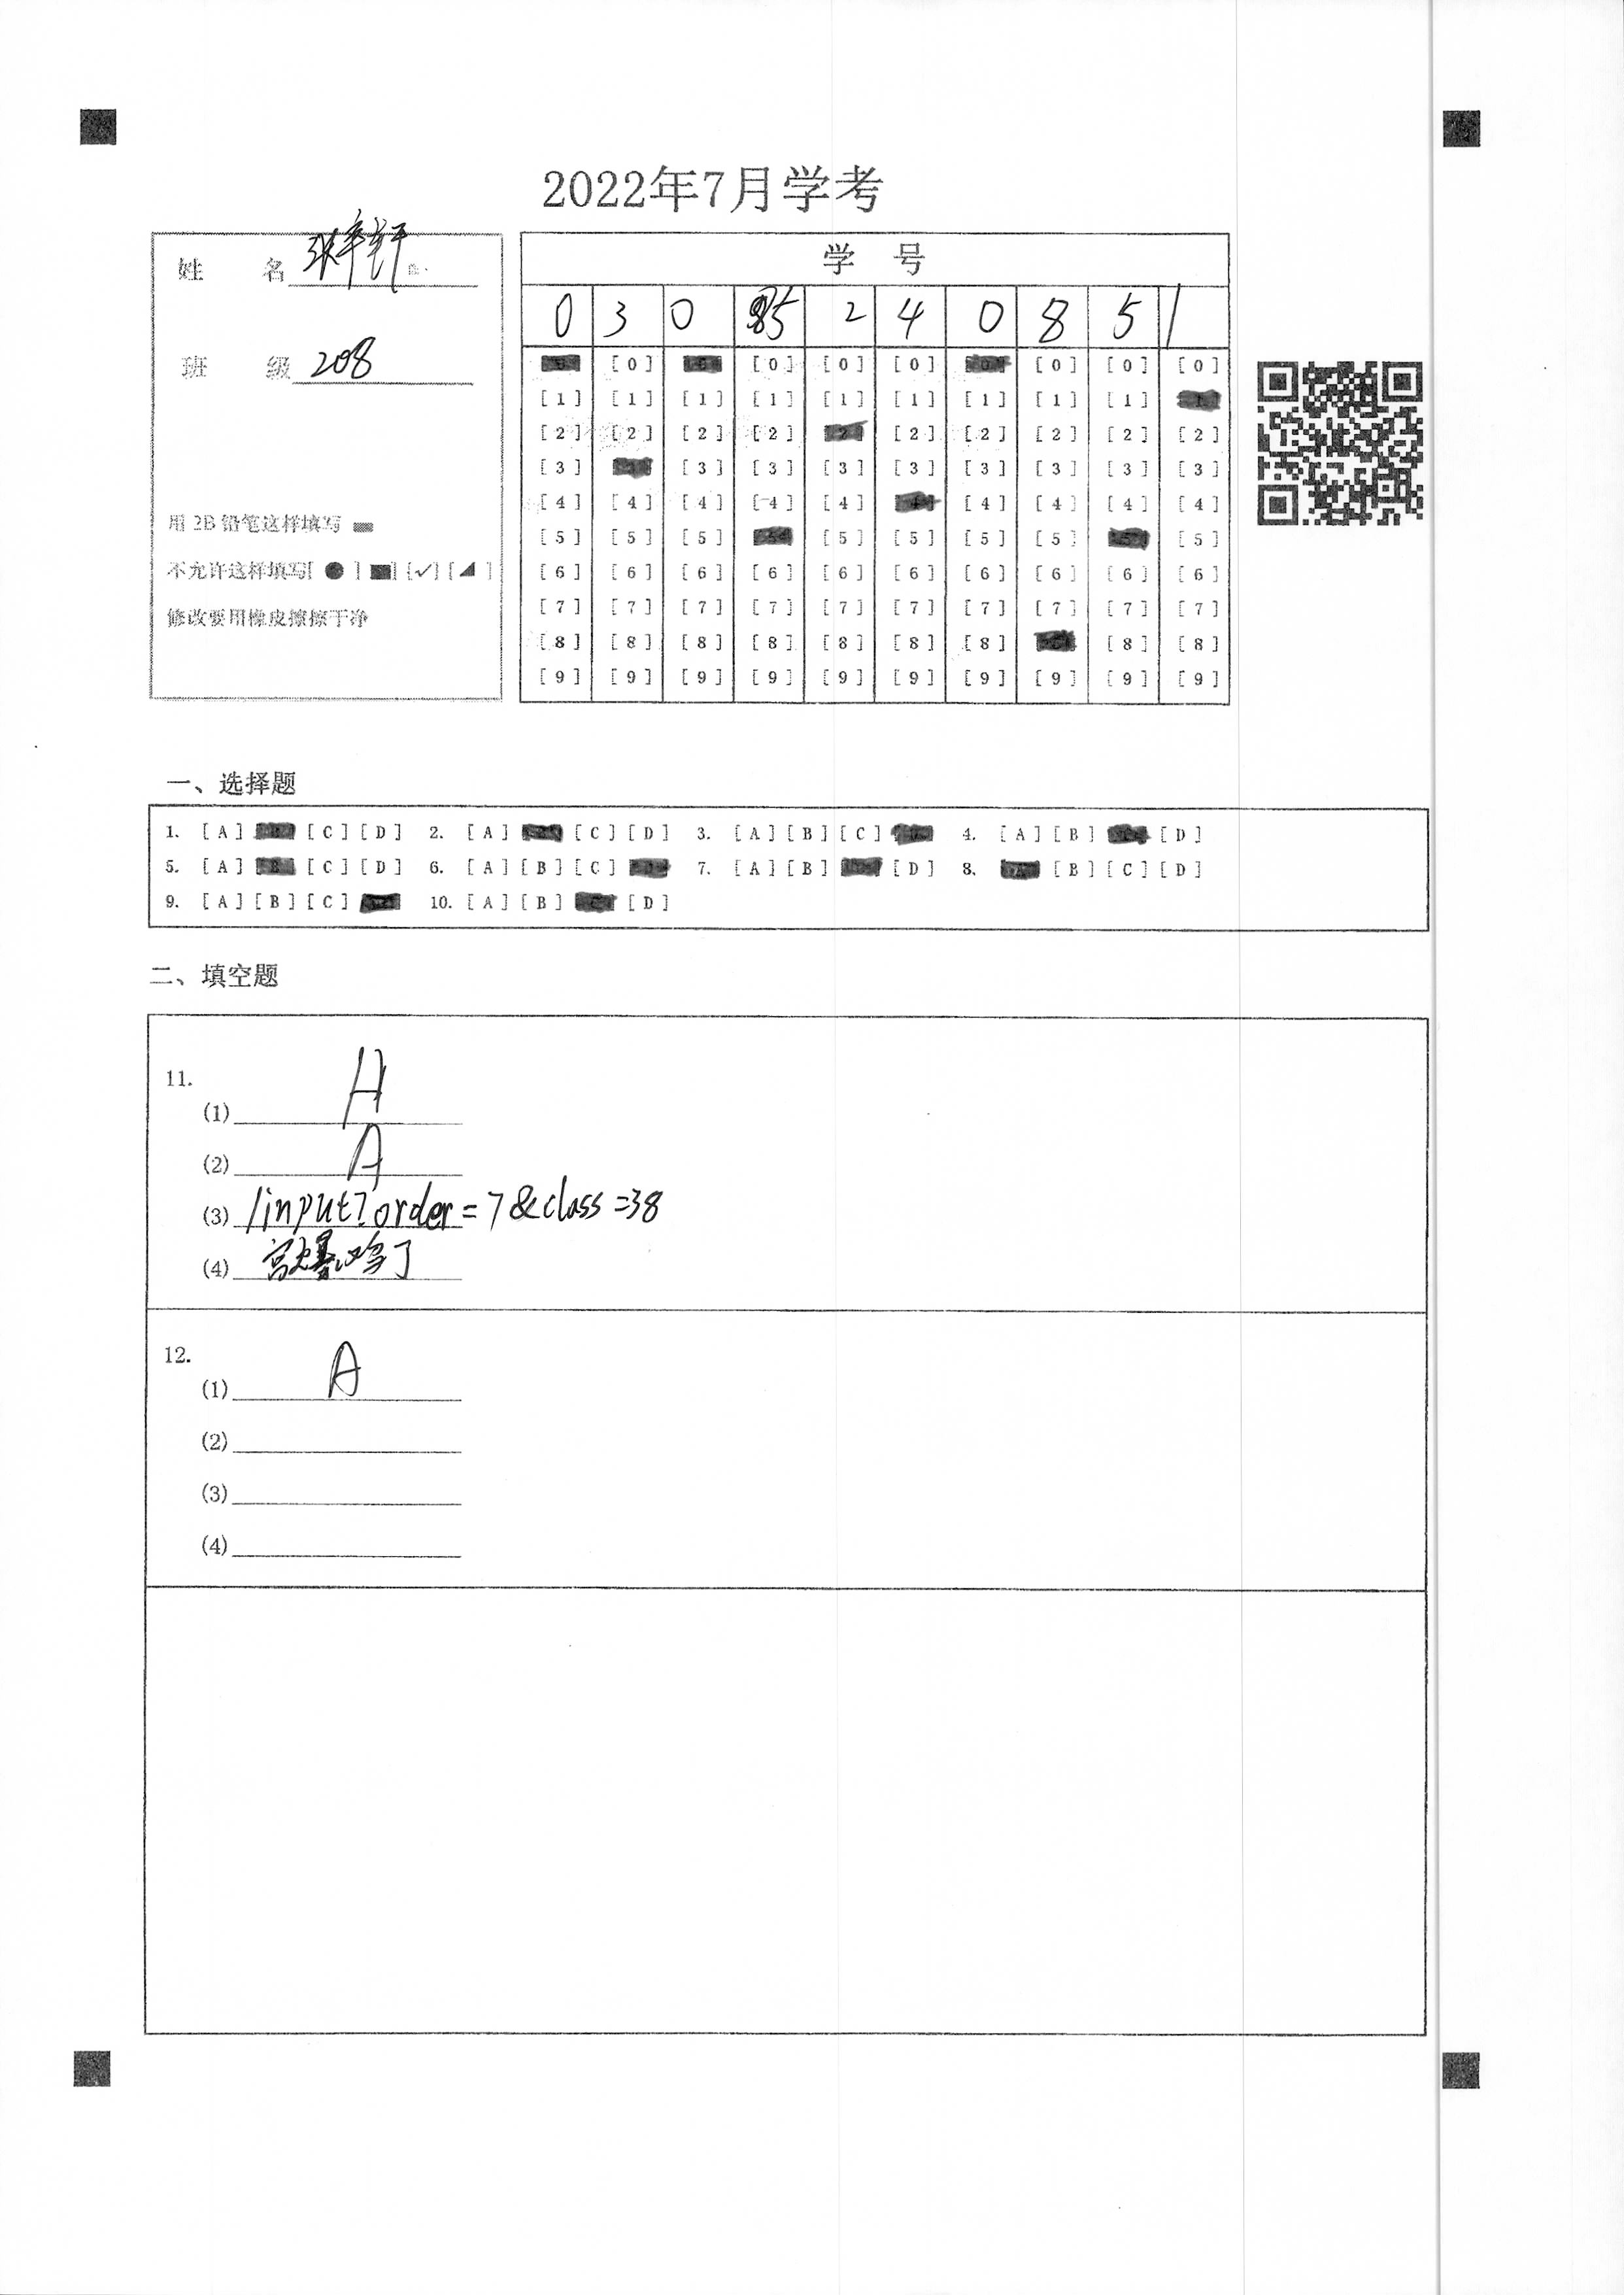 2022年7月学考
姓 名
班 级 208
用 2B 铅笔这样填写
不允许这样填写[ ● ] [■] [✓] [◢ ]
修改要用橡皮擦擦干净
学 号
0 3 0 5 2 4 0 8 5 1
[0] [0] [0] [0] [0] [0] [0]
[1] [1] [1] [1] [1] [1] [1] [1] [1]
[2] [2] [2] [2] [2] [2] [2] [2] [2]
[3] [3] [3] [3] [3] [3] [3] [3] [3]
[4] [4] [4] [4] [4] [4] [4] [4] [4]
[5] [5] [5] [5] [5] [5] [5] [5]
[6] [6] [6] [6] [6] [6] [6] [6] [6] [6]
[7] [7] [7] [7] [7] [7] [7] [7] [7] [7]
[8] [8] [8] [8] [8] [8] [8] [8] [8]
[9] [9] [9] [9] [9] [9] [9] [9] [9] [9]
一、选择题
1. [A] [C] [D] 2. [A] [C] [D] 3. [A] [B] [C] 4. [A] [B] [D]
5. [A] [C] [D] 6. [A] [B] [C] 7. [A] [B] [D] 8. [B] [C] [D]
9. [A] [B] [C] 10. [A] [B] [D]
二、填空题
11.
(1) H
(2) A
(3) /input?order=7&class=38
(4)
12.
(1) A
(2)
(3)
(4)